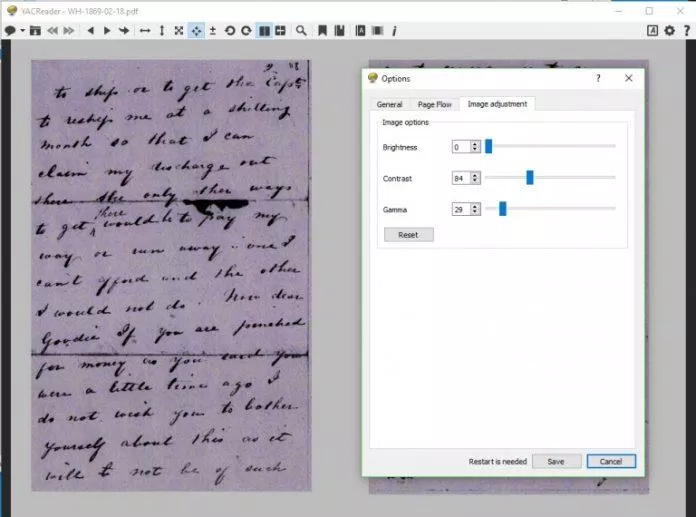 YACReader - WH-1869-02-18.pdf
2
to ship or to get the Capt
to reship me at a shilling
month so that I can
claim my discharge out
there the only other ways
there
to get would be to pay my
way or run away : one I
can't afford and the other
I would not do. Now dear
Goodie If you are pinched
for money as you said you
were a little time ago I
do not wish you to bother
yourself about this as it
will to not be of such
Options
?
General
Page Flow
Image adjustment
Image options
Brightness 0
Contrast 84
Gamma 29
Reset
Restart is needed
Save
Cancel